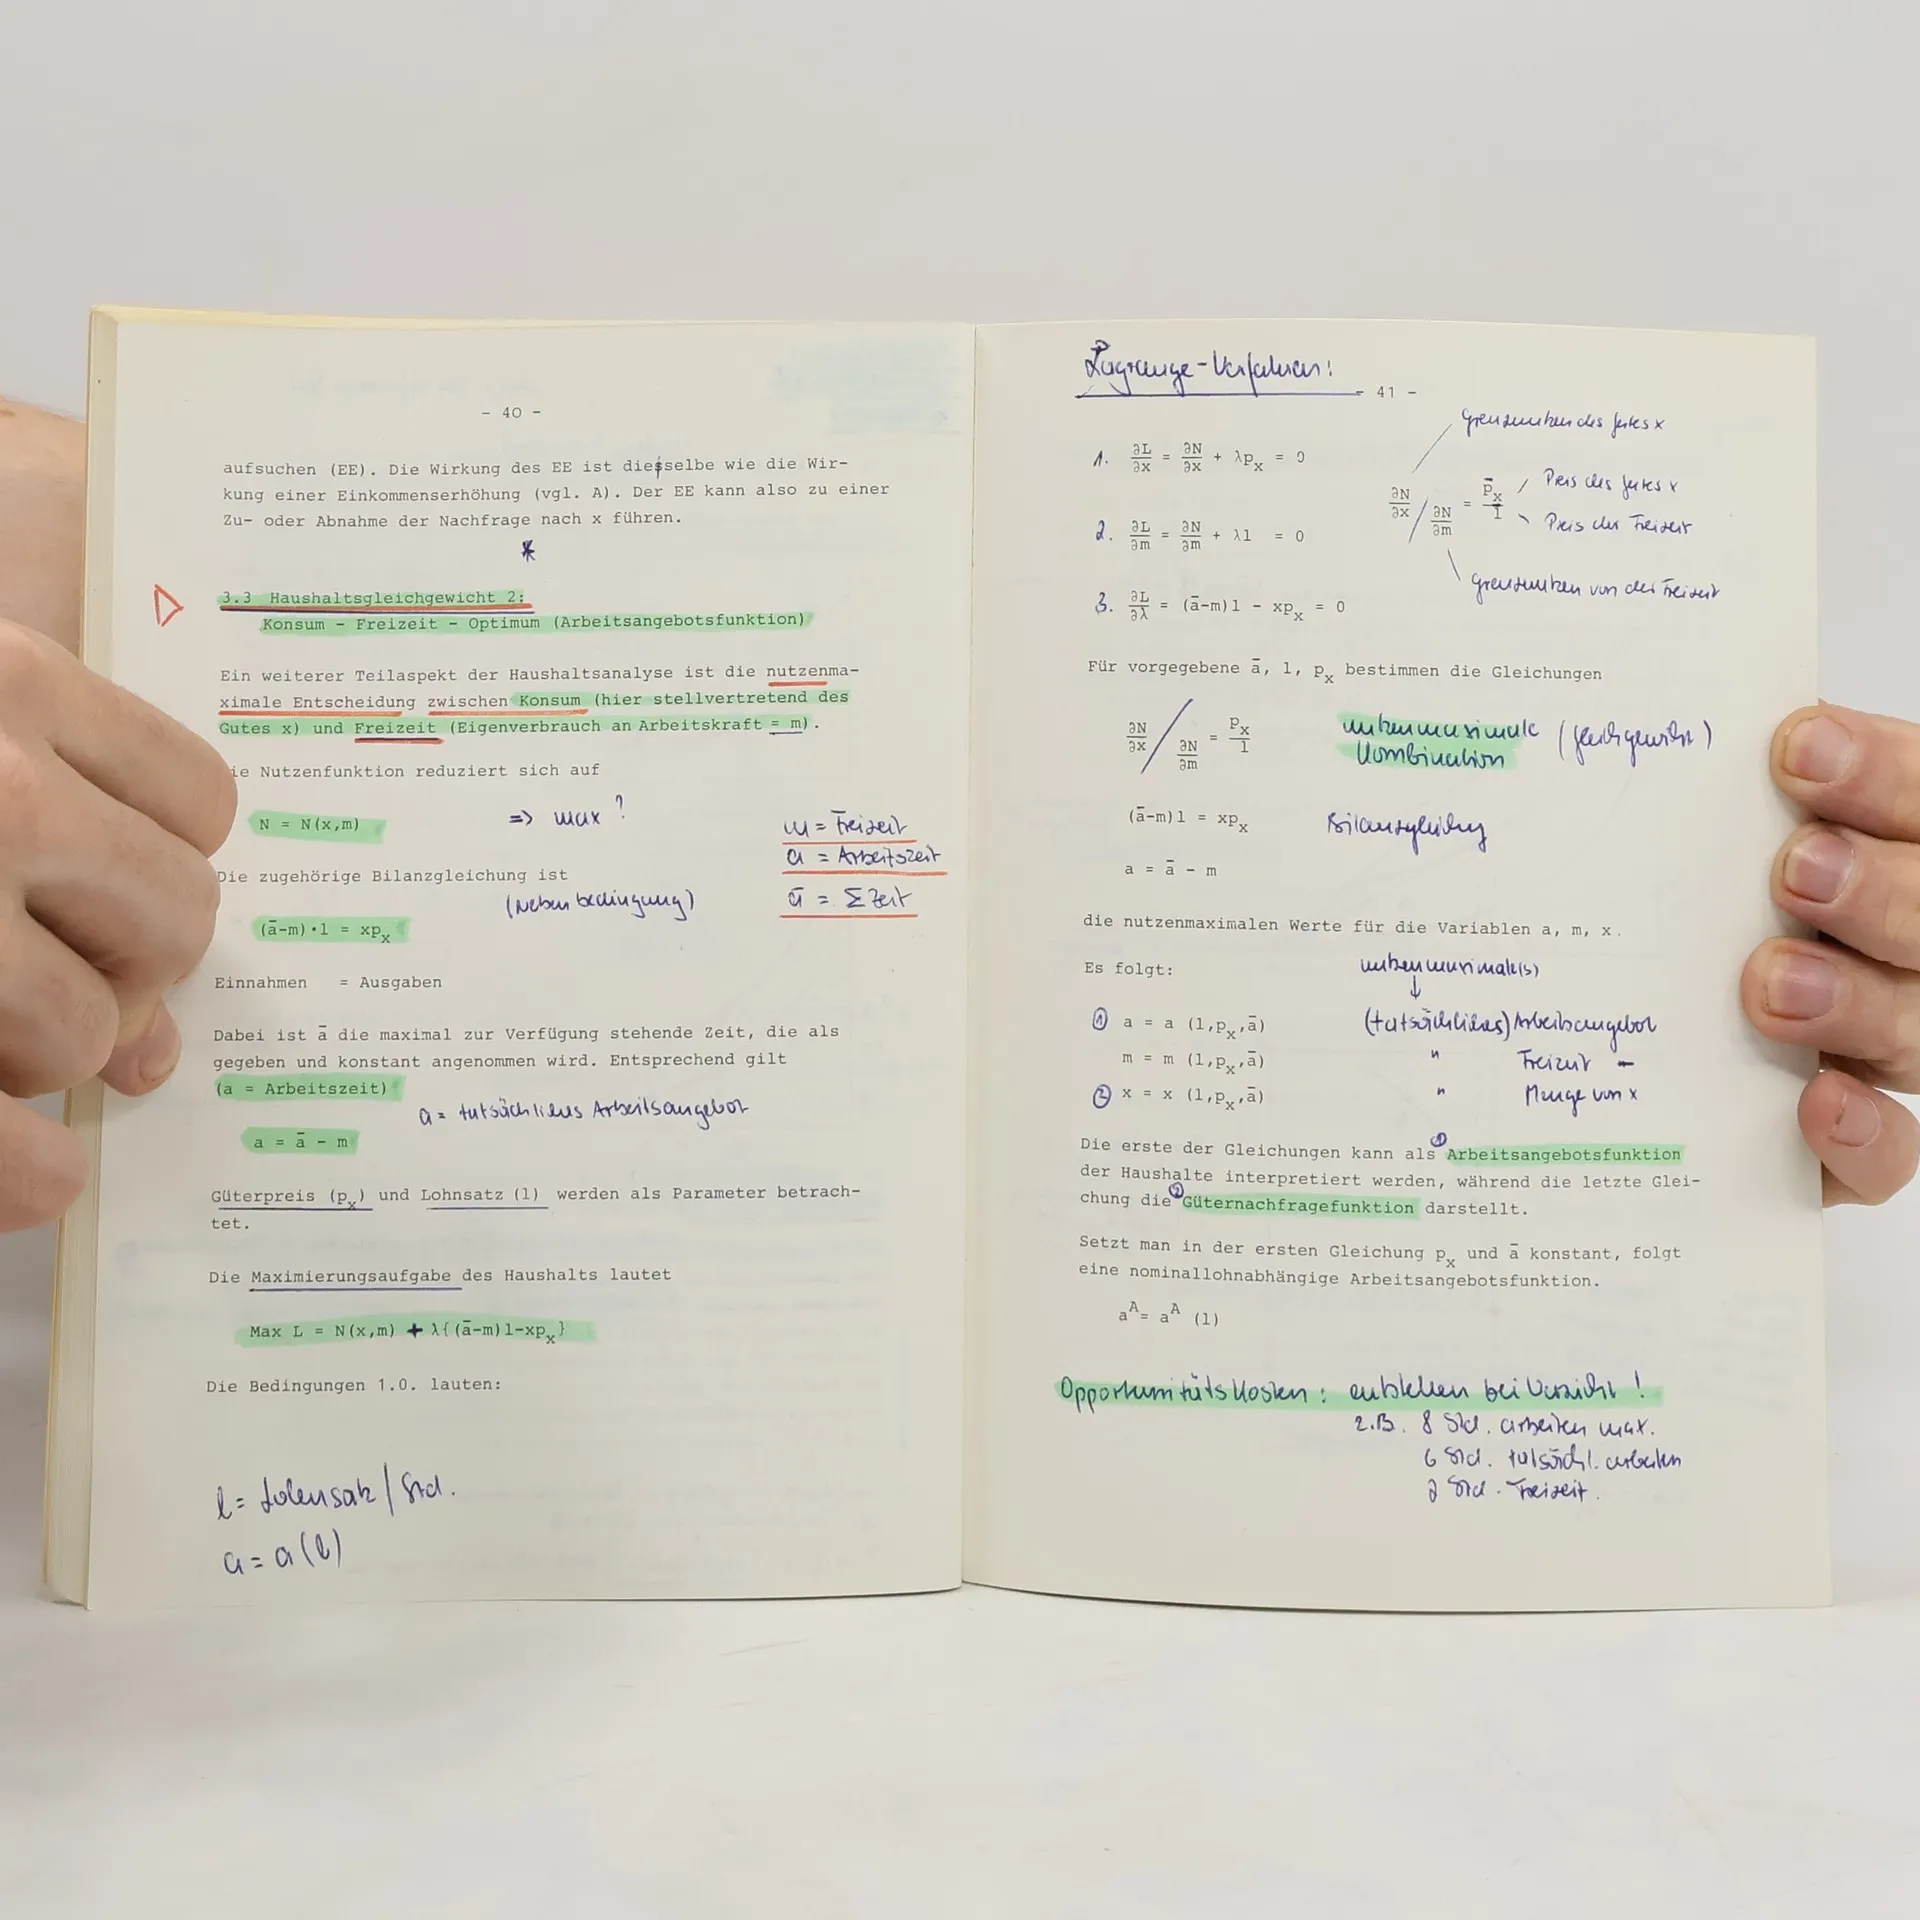 - 40 -
aufsuchen (EE). Die Wirkung des EE ist diesselbe wie die Wir-
kung einer Einkommenserhöhung (vgl. A). Der EE kann also zu einer
Zu- oder Abnahme der Nachfrage nach x führen.
*
3.3 Haushaltsgleichgewicht 2:
Konsum - Freizeit - Optimum (Arbeitsangebotsfunktion)
Ein weiterer Teilaspekt der Haushaltsanalyse ist die nutzenma-
ximale Entscheidung zwischen Konsum (hier stellvertretend des
Gutes x) und Freizeit (Eigenverbrauch an Arbeitskraft = m).
ie Nutzenfunktion reduziert sich auf
N = N(x,m) => max ?
m = Freizeit
a = Arbeitszeit
ā = Σ Zeit
Die zugehörige Bilanzgleichung ist
(Nebenbedingung)
(ā-m)·l = xpₓ
Einnahmen = Ausgaben
Dabei ist ā die maximal zur Verfügung stehende Zeit, die als
gegeben und konstant angenommen wird. Entsprechend gilt
(a = Arbeitszeit)
a = tatsächliches Arbeitsangebot
a = ā - m
Güterpreis (pₓ) und Lohnsatz (l) werden als Parameter betrach-
tet.
Die Maximierungsaufgabe des Haushalts lautet
Max L = N(x,m) + λ{(ā-m)l-xpₓ}
Die Bedingungen 1.0. lauten:
l = Lohnsatz / Std.
a = a(l)
Lagrange-Verfahren:
- 41 -
Grenznutzen des Gutes x
1. ∂L/∂x = ∂N/∂x + λpₓ = 0
∂N/∂x / ∂N/∂m = p̄ₓ/l
Preis des Gutes x
Preis der Freizeit
2. ∂L/∂m = ∂N/∂m + λl = 0
Grenznutzen von der Freizeit
3. ∂L/∂λ = (ā-m)l - xpₓ = 0
Für vorgegebene ā, l, pₓ bestimmen die Gleichungen
∂N/∂x / ∂N/∂m = pₓ/l nutzenmaximale (Gleichgewicht)
Kombination
(ā-m)l = xpₓ Bilanzgleichung
a = ā - m
die nutzenmaximalen Werte für die Variablen a, m, x.
Es folgt: nutzenmaximale(s)
↓
① a = a (l,pₓ,ā) (tatsächliches) Arbeitsangebot
m = m (l,pₓ,ā) " Freizeit -
② x = x (l,pₓ,ā) " Menge von x
Die erste der Gleichungen kann als ① Arbeitsangebotsfunktion
der Haushalte interpretiert werden, während die letzte Glei-
chung die ② Güternachfragefunktion darstellt.
Setzt man in der ersten Gleichung pₓ und ā konstant, folgt
eine nominallohnabhängige Arbeitsangebotsfunktion.
aᴬ= aᴬ (l)
Opportunitätskosten: entstehen bei Verzicht!
z.B. 8 Std. arbeiten max.
6 Std. tatsächl. arbeiten
2 Std. Freizeit.